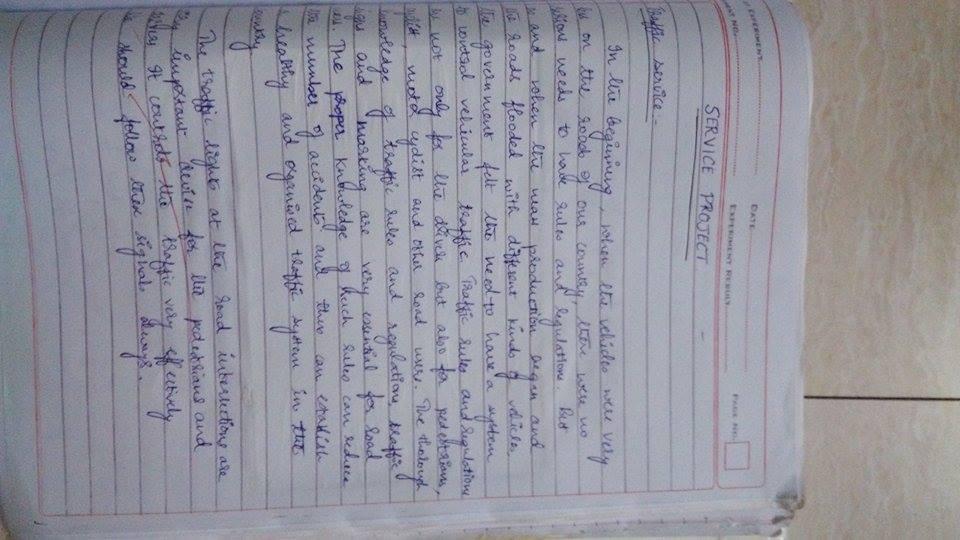 EXPERIMENT:
DATE
NO:
EXPERIMENT RESULT
PAGE NO.
SERVICE PROJECT -
Traffic service:-
In the beginning, when the vehicles were very
on the roads of our country there were no
needs to have rules and regulations. But
and when the mass production began and
the roads flooded with different kinds of vehicles,
the government felt the need to have a system
to control vehicular traffic. Traffic rules and regulations
is not only for the driver but also for pedestrians,
motor cyclist and other road users. The thorough
knowledge of traffic rules and regulations, traffic
signs and marking are very essential for road
The proper knowledge of such rules can reduce
the number of accidents and thus can establish
a healthy and organised traffic system in the
country
The traffic lights at the road intersections are
important device for the pedestrians and
it controls the traffic very effectively
should follow these signals always.